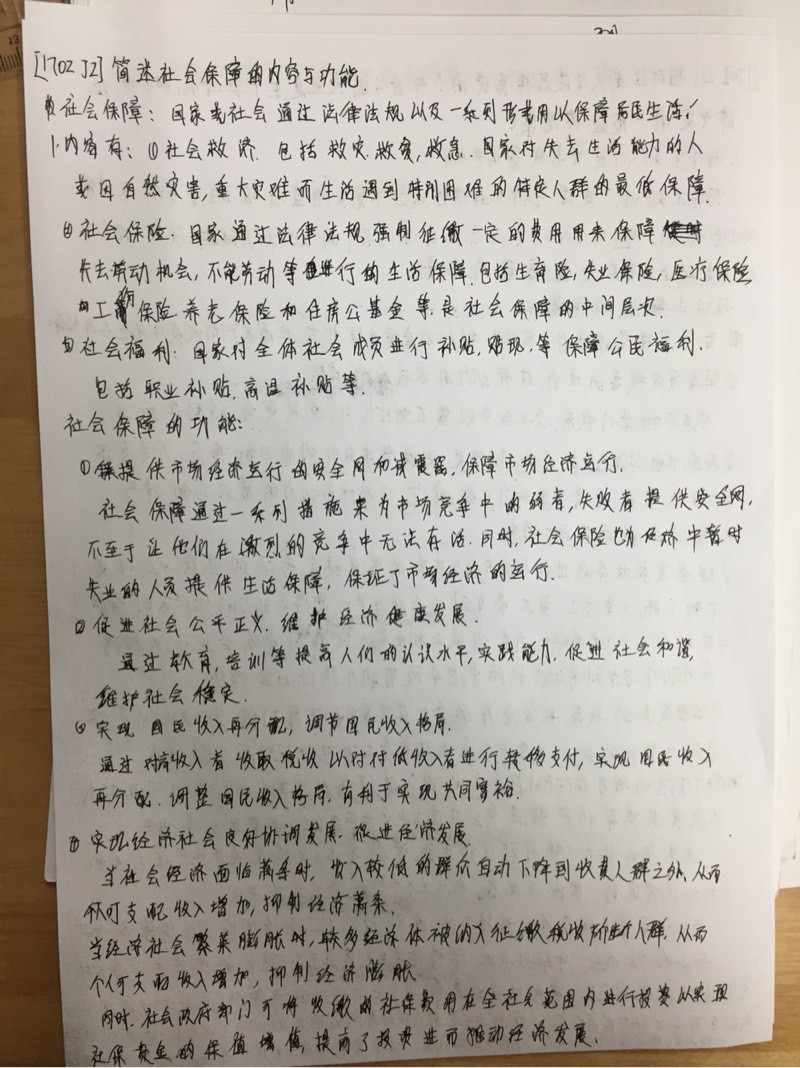 [1702 J2] 简述社会保障的内容与功能.
社会保障: 国家或社会通过法律法规以及一系列 用以保障居民生活.
1.内容有: ①社会救济. 包括救灾,救贫,救急. 国家对失去生活能力的人
或因自然灾害,重大灾难而生活遇到特别困难的特定人群的最低保障.
②社会保险. 国家通过法律法规强制征缴一定的费用用来保障
失去劳动机会,不能劳动等进行的生活保障.包括生育险,失业保险,医疗保险
工伤保险.养老保险和住房公基金等.是社会保障的中间层次.
③社会福利: 国家对全体社会成员进行补贴,贴现,等保障公民福利.
包括职业补贴,高温补贴等.
社会保障的功能:
①提供市场经济运行的安全网和减震器,保障市场经济运行.
社会保障通过一系列措施来为市场竞争中的弱者,失败者提供安全网,
不至于让他们在激烈的竞争中无法存活.同时,社会保险也为 中暂时
失业的人员提供生活保障, 保证了市场经济的运行.
②促进社会公平正义.维护经济健康发展.
通过教育,培训等提高人们的认识水平,实践能力.促进社会和谐,
维护社会稳定.
③实现国民收入再分配,调节国民收入格局.
通过对高收入者收取税收以对付低收入者进行转移支付,实现国民收入
再分配.调整国民收入格局.有利于实现共同富裕.
④实现经济社会良好协调发展.促进经济发展.
当社会经济面临萧条时, 收入较低的群众自动下降到收费人群之外,从而
可支配收入增加,抑制经济萧条.
当经济社会繁荣膨胀时,较多经济体被纳入征缴税收 人群.从而
个人可支配收入增加,抑制经济膨胀
同时.社会政府部门可将收缴的社保费用在全社会范围内进行投资以实现
社保资金的保值增值,提高了投资进而推动经济发展.